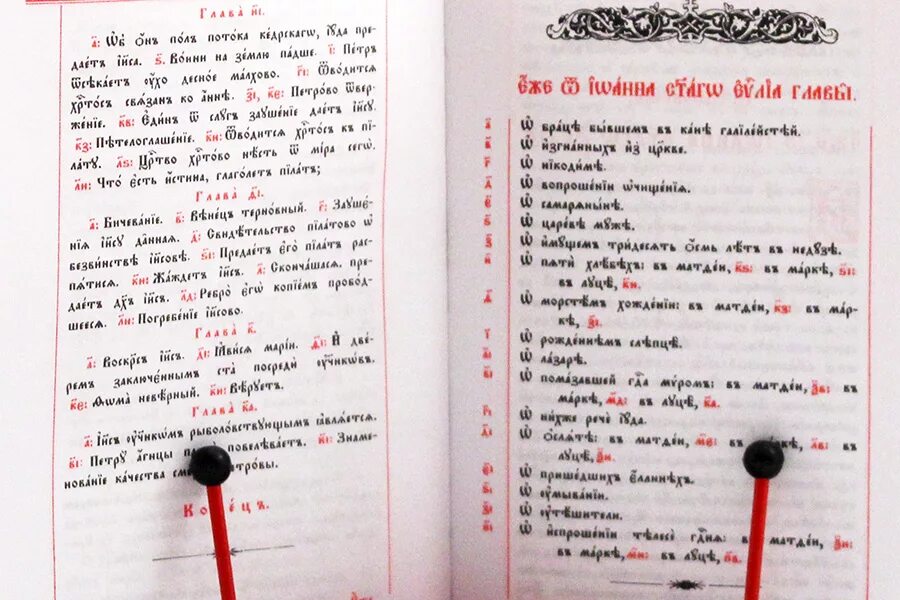 Глава̀ и҃і.
а҃: Ѡб̾ ѻ́нъ по́лъ пото́ка ке́дрскагѡ, і҆ꙋ́да пре-
дае́тъ і҆и҃са. ѕ҃. Во́ини на зе́млю па́дше. і҃: Пе́тръ
ѿсѣка́етъ ᲂу҆́хо десно́е ма́лхово. г҃і: Ѿво́дится
хрⷭ҇то́съ свѧ́занъ ко а҆́ннѣ. з҃і, к҃е: Петро́во ѿвер-
же́ніе. к҃в: Е҆ди́нъ ѿ слꙋ́гъ заꙋше́ніе дае́тъ і҆и҃сꙋ.
к҃з: Пѣтелоглаше́ніе. к҃и: Ѿво́дится хрⷭ҇то́съ къ пі-
ла́тꙋ. л҃ѕ: Црⷭ҇тво хрⷭ҇то́во нѣ́сть ѿ мі́ра сегѡ̀.
л҃и: Что̀ є҆́сть и҆́стина, глаго́летъ піла́тъ;
Глава̀ ѳ҃і.
а҃: Бичева́ніе. в҃: Вѣне́цъ терно́вный. г҃: Заꙋше́-
нія і҆и҃сꙋ да́нная. д҃: Свидѣ́тельство піла́тово ѡ҆
безви́нствѣ і҆и҃совѣ. ѕ҃і: Предае́тъ є҆го̀ піла́тъ рас-
пѧ́тися. к҃и: Жа́ждетъ і҆и҃съ. л҃: Сконча́шася. пре-
дае́тъ дꙋ́хъ і҆и҃съ. л҃д: Ребро̀ є҆гѡ̀ копіе́мъ пробод-
ше́еся. л҃и: Погребе́ніе і҆и҃сово.
Глава̀ к҃.
а҃: Воскр҃съ і҆и҃съ. д҃і: Ꙗ҆ви́ся марі́и. ѳ҃і: И҆ две́-
ремъ заключє́ннымъ ста̀ посредѝ ᲂу҆чн҃кѡ́въ.
к҃е: Ѳѡма̀ невѣ́рный. к҃и: Вѣ́рꙋетъ.
Глава̀ к҃а.
а҃: І҆и҃съ ᲂу҆чн҃кѡ́мъ рыболо́вствꙋющымъ ꙗ҆влѧ́ется.
в҃і: Петрꙋ̀ а҆́гнцы повелѣва́етъ. и҃і: Зна́ме-
нованіе ка́чества петро́вы.
Коне́цъ.
Є҆́же ѿ І҆ѡа́нна ст҃а́гѡ є҆ѵⷢ҇лїа главы̑.
а҃ Ѡ҆ бра́цѣ бы́вшемъ въ ка́нѣ галїле́йстѣй.
в҃ Ѡ҆ и҆зѓнанныхъ и҆з̾ цр҃кве.
г҃ Ѡ҆ нїкоди́мѣ.
д҃ Ѡ҆ вопроше́нїи ѡ҆чище́нїя.
є҃ Ѡ҆ самарѧны́нѣ.
ѕ҃ Ѡ҆ царе́вѣ мꙋ́жѣ.
з҃ Ѡ҆ и҆мꙋ́щемъ три́десять ѻ҆́смь лѣ́тъ въ недꙋ́зѣ.
и҃ Ѡ҆ пятѝ хлѣ́бѣхъ: въ матѳе́и, к҃ѕ: въ ма́ркѣ, ѕ҃і:
въ лꙋцѣ̀, к҃и.
ѳ҃ Ѡ҆ морстѣ́мъ хожде́нїи: въ матѳе́и, к҃з: въ ма́р-
кѣ, з҃і.
і҃ Ѡ҆ рожде́ннѣмъ слѣпцѣ̀.
а҃і Ѡ҆ ла́зарѣ.
в҃і Ѡ҆ пома́завшей гдⷭ҇а мѵ́ромъ: въ матѳе́и, ѯ҃в: въ
ма́ркѣ, м҃д: въ лꙋцѣ̀, к҃а.
г҃і Ѡ҆ ни́хже речѐ і҆ꙋ́да.
д҃і Ѡ҆ ѻ҆слѧ́тѣ: въ матѳе́и, м҃є: въ ма́ркѣ, л҃в: въ
лꙋцѣ̀, ѯ҃и.
є҃і Ѡ҆ прише́дшихъ є҆́ллинѣхъ.
ѕ҃і Ѡ҆ ᲂу҆мыва́нїи.
з҃і Ѡ҆ ᲂу҆тѣ́шители.
и҃і Ѡ҆ и҆спроше́нїи тѣлесѐ гдⷭ҇ня: въ матѳе́и, ѯ҃и:
въ ма́ркѣ, м҃и: въ лꙋцѣ̀, п҃в.